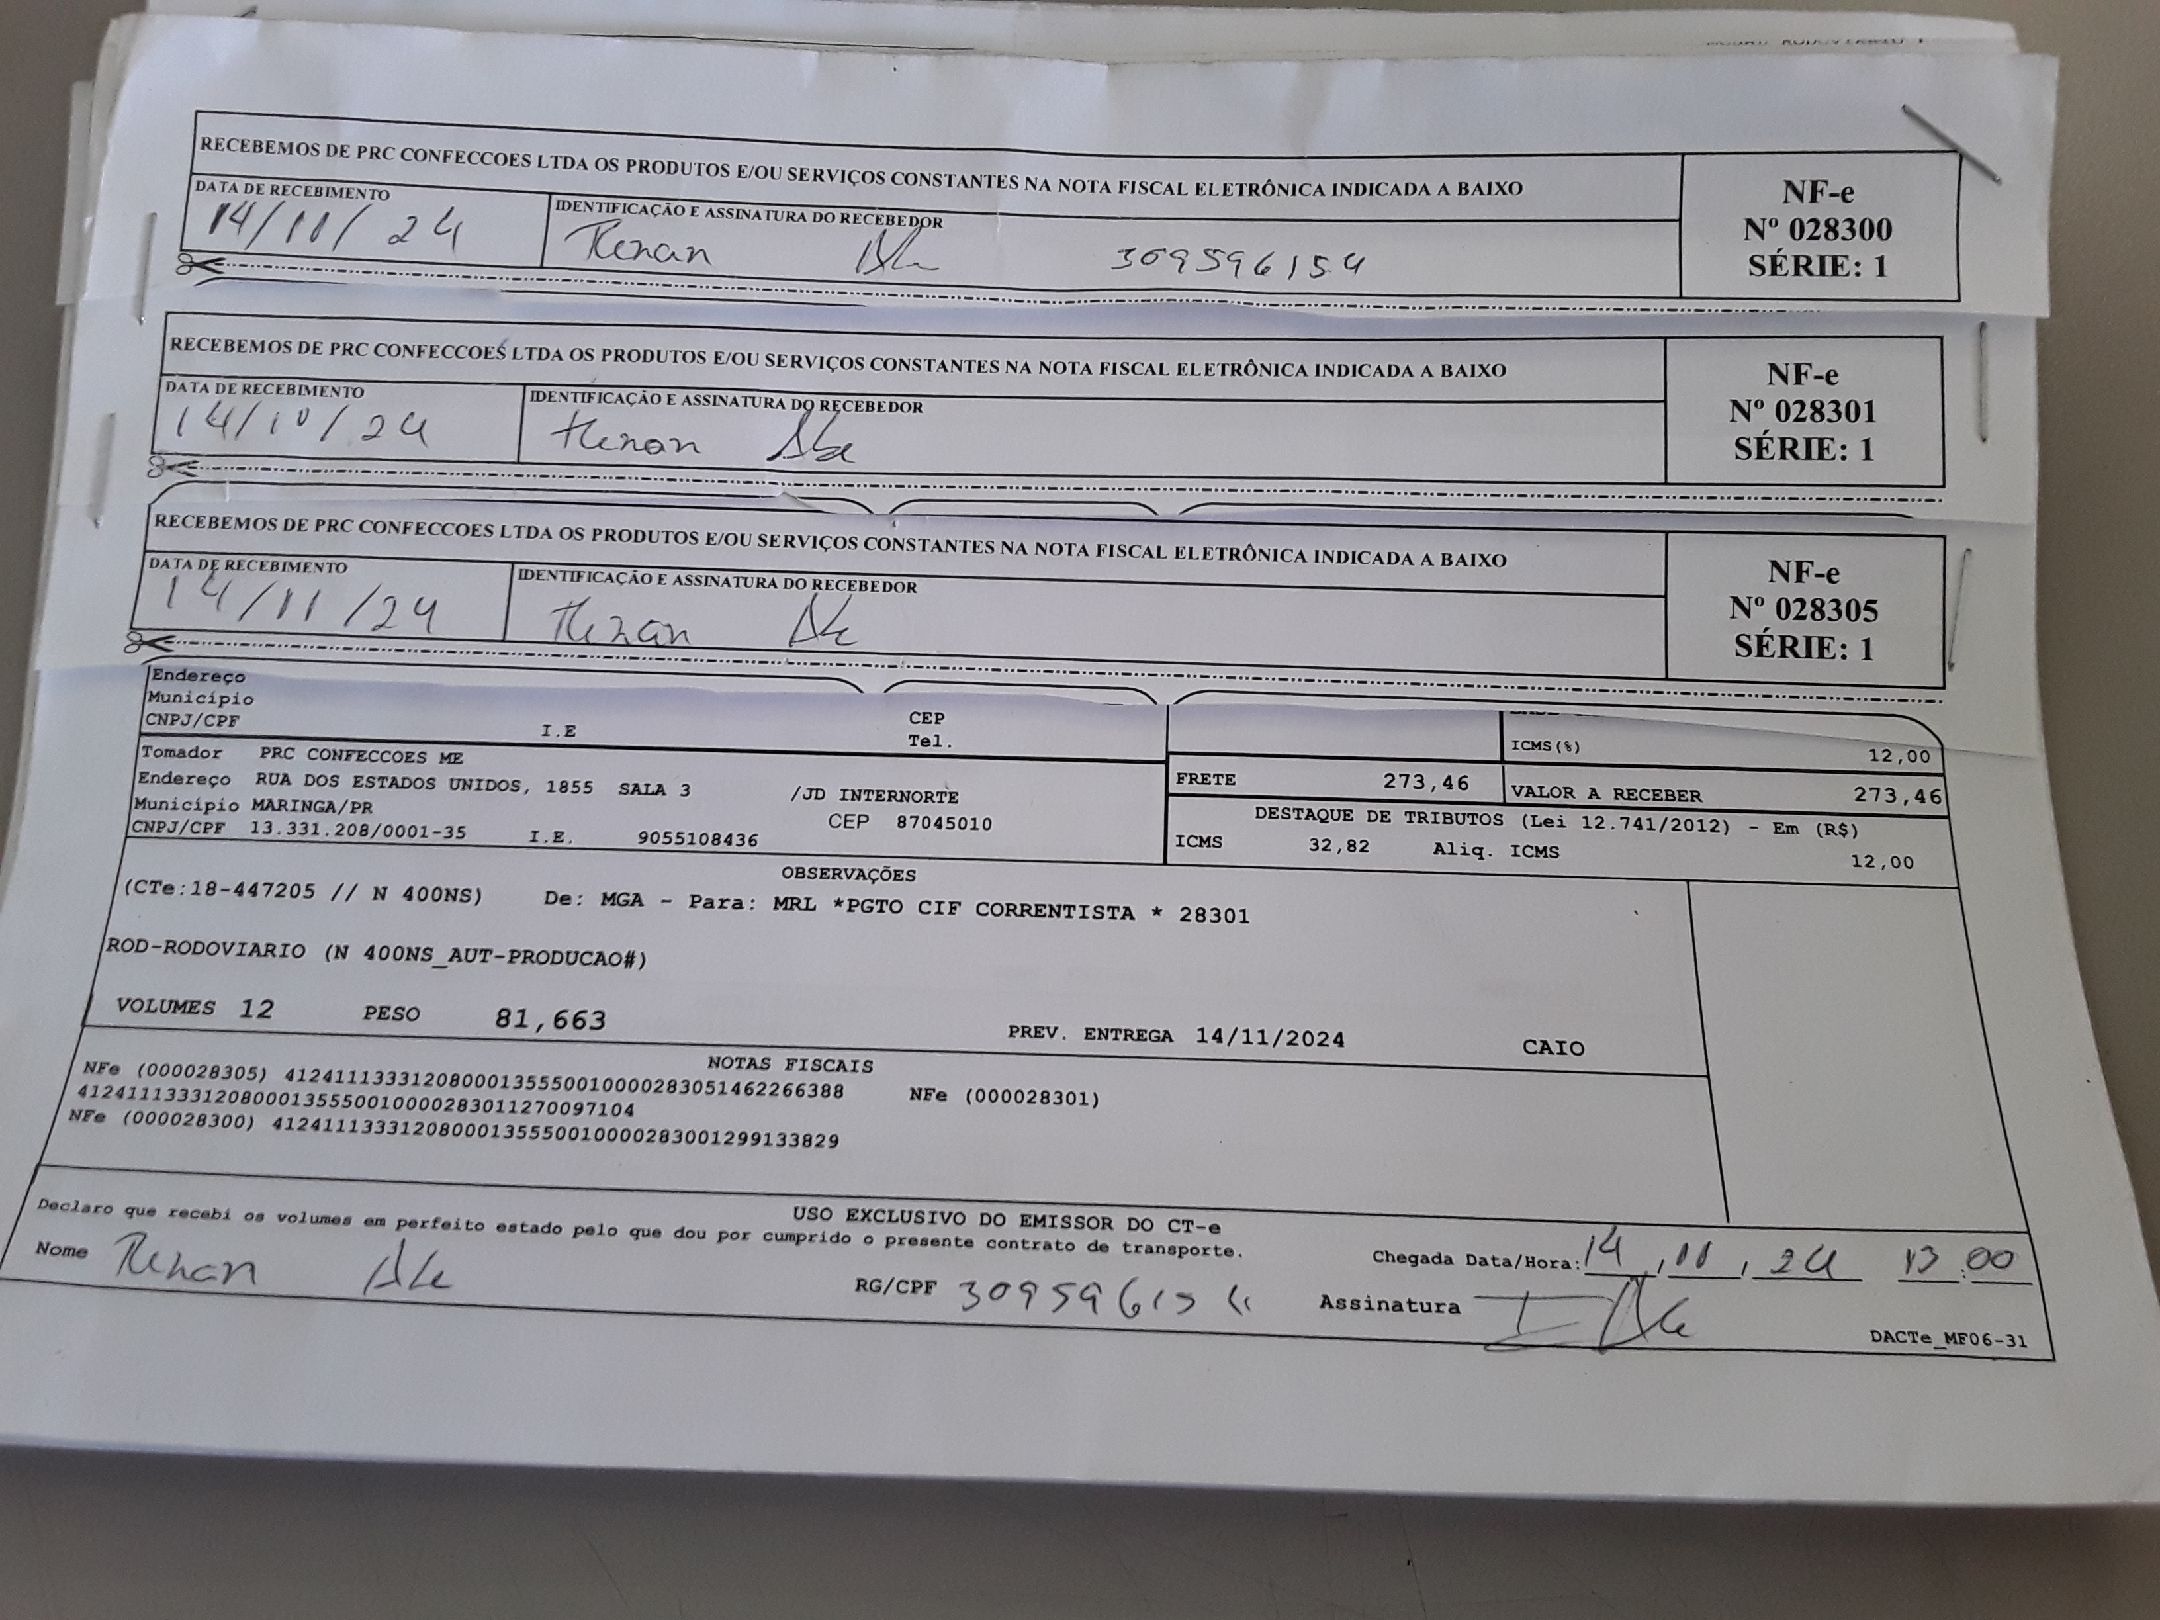 RECEBEMOS DE PRC CONFECCOES LTDA OS PRODUTOS E/OU SERVIÇOS CONSTANTES NA NOTA FISCAL ELETRÔNICA INDICADA A BAIXO
NF-e
Nº 028300
SÉRIE: 1
DATA DE RECEBIMENTO
14/11/24
IDENTIFICAÇÃO E ASSINATURA DO RECEBEDOR
Renan 309596154
RECEBEMOS DE PRC CONFECCOES LTDA OS PRODUTOS E/OU SERVIÇOS CONSTANTES NA NOTA FISCAL ELETRÔNICA INDICADA A BAIXO
NF-e
Nº 028301
SÉRIE: 1
DATA DE RECEBIMENTO
14/10/24
IDENTIFICAÇÃO E ASSINATURA DO RECEBEDOR
Renan
RECEBEMOS DE PRC CONFECCOES LTDA OS PRODUTOS E/OU SERVIÇOS CONSTANTES NA NOTA FISCAL ELETRÔNICA INDICADA A BAIXO
NF-e
Nº 028305
SÉRIE: 1
DATA DE RECEBIMENTO
14/11/24
IDENTIFICAÇÃO E ASSINATURA DO RECEBEDOR
Renan
Endereço
Município CEP
CNPJ/CPF I.E Tel.
ICMS(%) 12,00
Tomador PRC CONFECCOES ME
Endereço RUA DOS ESTADOS UNIDOS, 1855 SALA 3 /JD INTERNORTE
Município MARINGA/PR CEP 87045010
CNPJ/CPF 13.331.208/0001-35 I.E. 9055108436
FRETE 273,46 VALOR A RECEBER 273,46
DESTAQUE DE TRIBUTOS (Lei 12.741/2012) - Em (R$)
ICMS 32,82 Aliq. ICMS 12,00
OBSERVAÇÕES
(CTe:18-447205 // N 400NS) De: MGA - Para: MRL *PGTO CIF CORRENTISTA * 28301
ROD-RODOVIARIO (N 400NS_AUT-PRODUCAO#)
VOLUMES 12 PESO 81,663 PREV. ENTREGA 14/11/2024 CAIO
NOTAS FISCAIS
NFe (000028305) 41241113331208000135550010000283051462266388 NFe (000028301)
41241113331208000135550010000283011270097104
NFe (000028300) 41241113331208000135550010000283001299133829
USO EXCLUSIVO DO EMISSOR DO CT-e
Declaro que recebi os volumes em perfeito estado pelo que dou por cumprido o presente contrato de transporte.
Chegada Data/Hora: 14,11,24 13:00
Nome Renan RG/CPF 309596154 Assinatura
DACTe_MF06-31